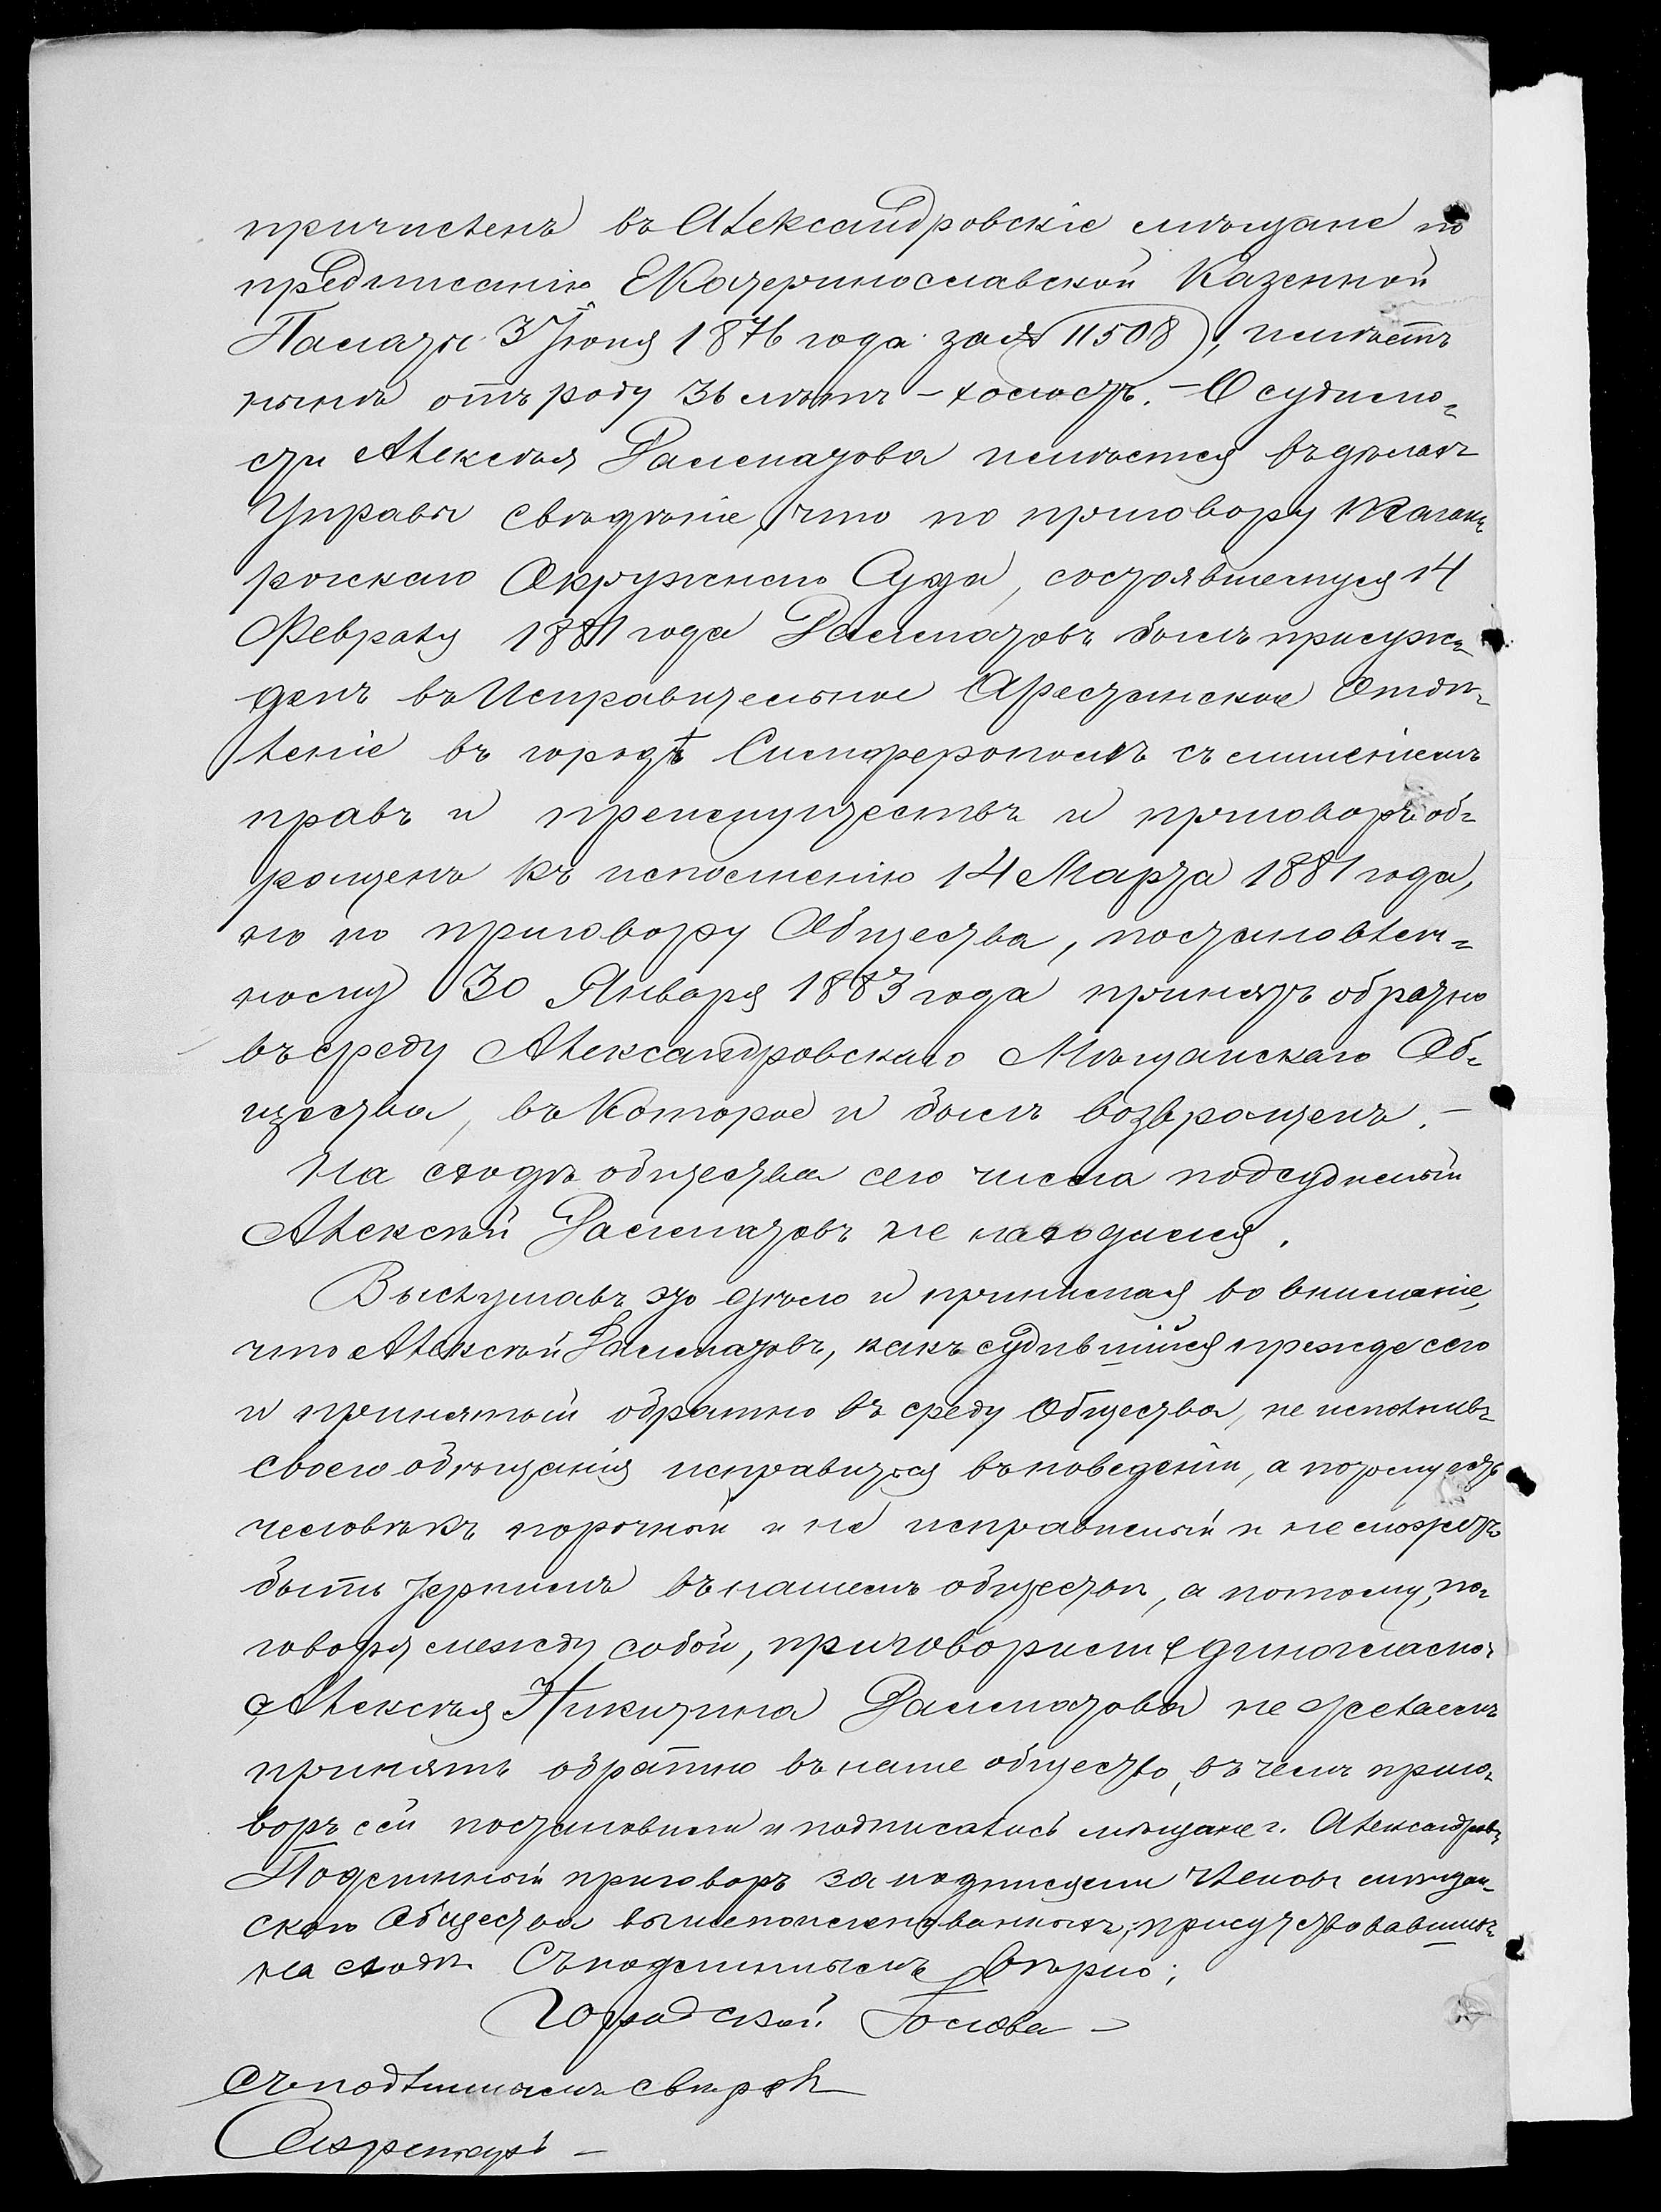 причисленъ въ Александровскіе мѣщане по
предписанію Екатеринославской Казенной
Палаты 3 Іюня 1876 года за № 11508), имѣетъ
нынѣ отъ роду 36 лѣтъ – холостъ. – О судимо-
сти Алексѣя Далматова имѣется въ дѣлахъ
Управы свѣдѣніе, что по приговору Таган-
рогскаго Окружнаго Суда, состоявшемуся 14
Февраля 1881 года Далматовъ былъ присуж-
денъ въ Исправительное Арестанское Отдѣ-
леніе въ городѣ Симферополѣ съ лишеніемъ
правъ и преимуществъ и приговоръ об-
ращенъ къ исполненію 14 Марта 1881 года,
но по приговору Общества, постановлен-
ному 30 Января 1883 года принятъ обратно
въ среду Александровскаго Мѣщанскаго Об-
щества, въ которое и былъ возвращенъ. –
На сходѣ общества сего числа подсудимый
Алексѣй Далматовъ не находился.
Выслушавъ это дѣло и принимая во вниманіе,
что Алексѣй Далматовъ, какъ судившійся прежде сего
и принятый обратно въ среду Общества, не исполнивъ
своего обѣщанія исправиться въ поведеніи, а потому есть
человѣкъ порочный и не исправимый и не можетъ
быть терпимъ въ нашемъ обществѣ, а потому, по-
говоря между собой, приговорили единогласно:
Алексѣя Никитина Далматова не желаемъ
принять обратно въ наше общество, въ чемъ приго-
воръ сей постановили и подписались мѣщане г. Александров.
Подлинный приговоръ за подписями членовъ мѣщан-
скаго Общества вышепоименованныхъ, присутствовавшихъ
на сходѣ. Съ подлиннымъ вѣрно:
Городской Голова –
Съ подлиннымъ свѣрялъ
Секретарь –